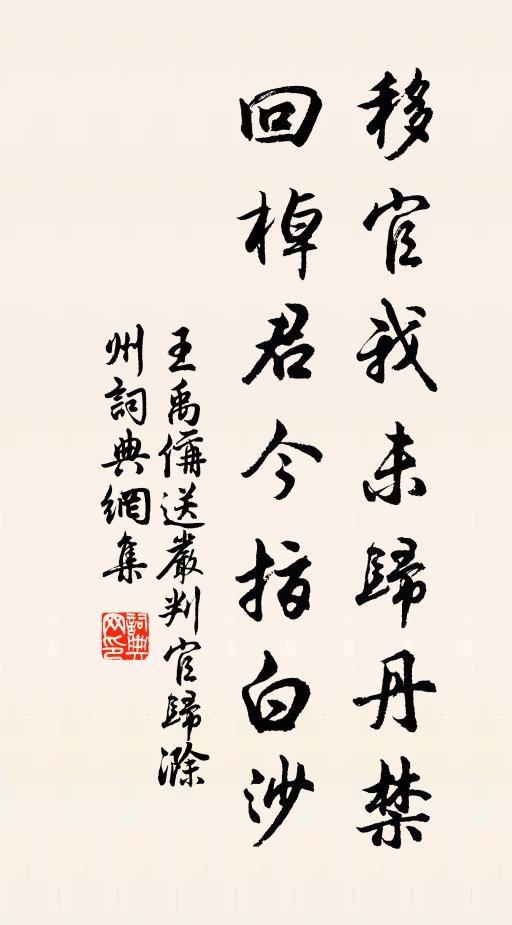 移官我未歸丹禁
回棹君今指白沙
王禹偁送嚴判官歸滁
州詞典網集
詞典網印